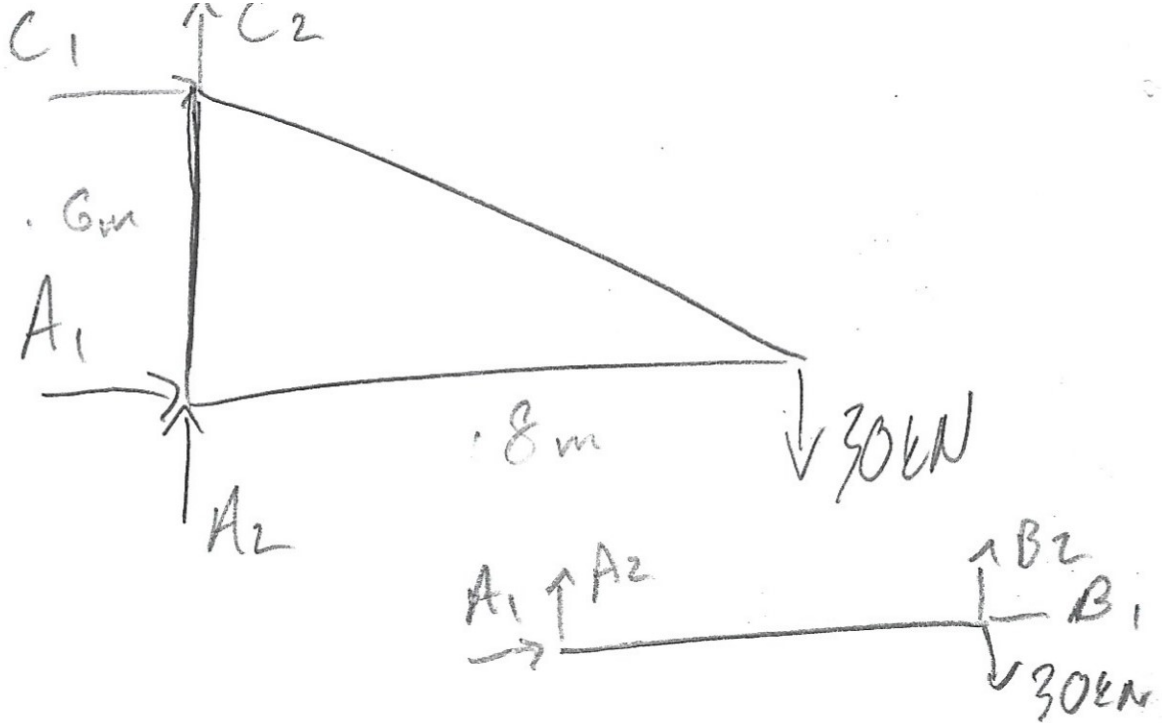 C1
C2
.6m
A1
A2
.8m
30kN
A1
A2
B2
B1
30kN